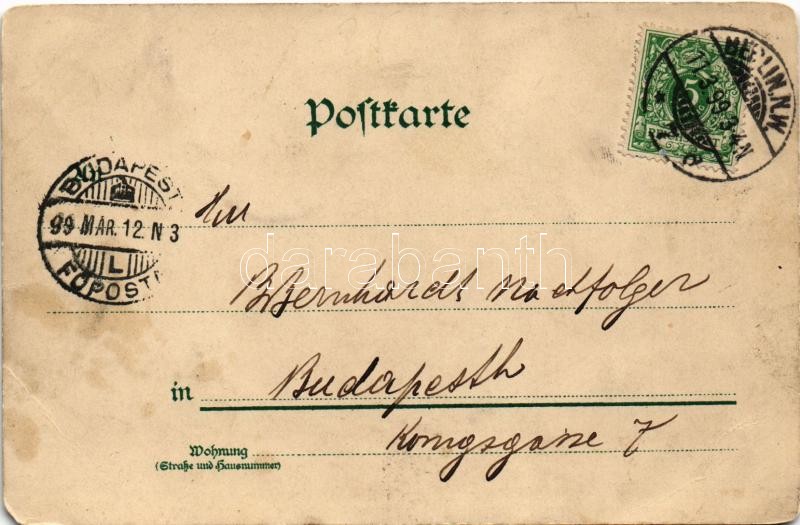 Postkarte
BERLIN. N.W.
99. 3-4N
5
BUDAPEST
99 MAR. 12. N 3
L
FŐPOST
darabanth
Bernhardt Nachfolger
in Budapesth
Königsgasse 7
Wohnung
(Straße und Hausnummer)